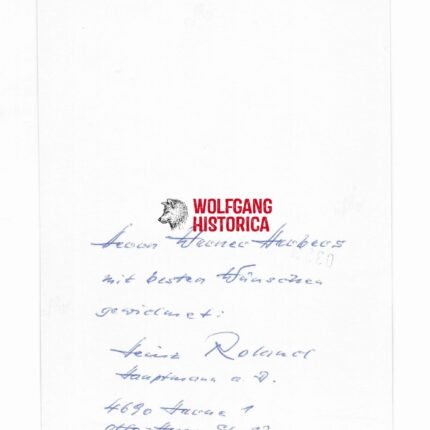 WOLFGANG
HISTORICA
Herrn Werner
mit besten Wünschen
gewidmet:
Heinz Roland
Hauptmann a. D.
4690 Herne 1